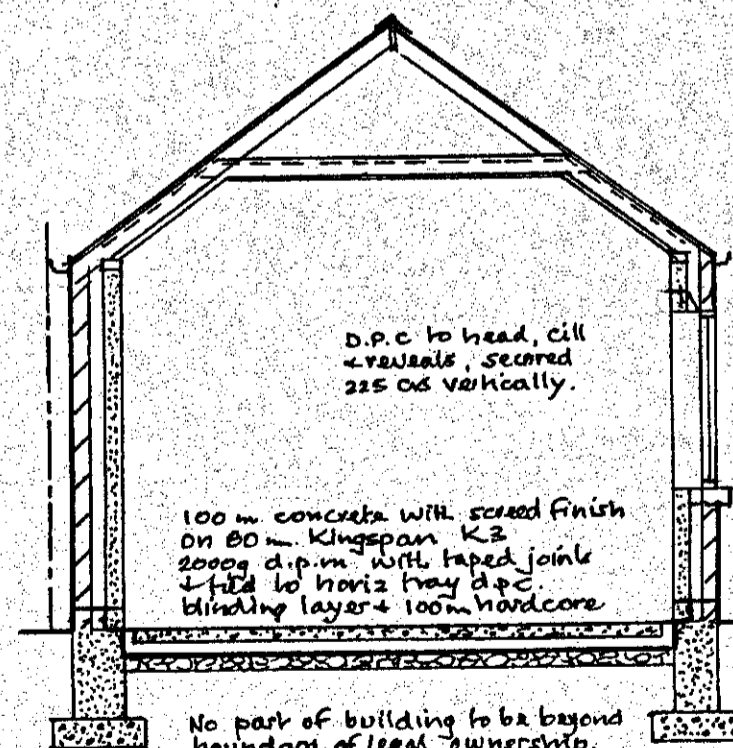 D.P.C to head, cill
+ reveals, secured
225 c/s vertically.
100 m concrete with screed finish
on 80 m Kingspan K3
2000g d.p.m with taped joints
+ tied to horiz tray dpc.
blinding layer + 100m hardcore
No part of building to be beyond
boundary of legal ownership